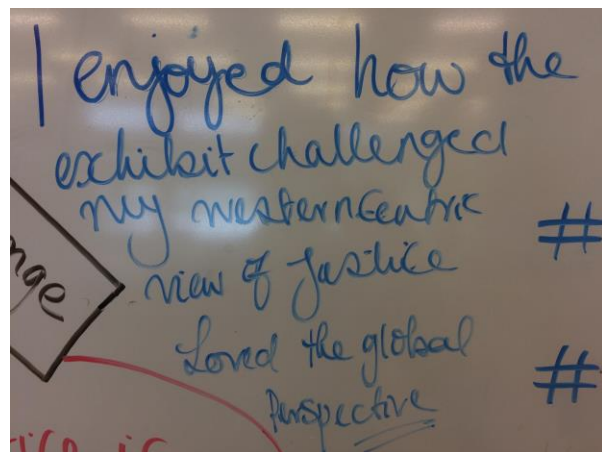 I enjoyed how the
exhibit challenged
my western centric
view of Justice
#
Loved the global
Perspective
#
nge